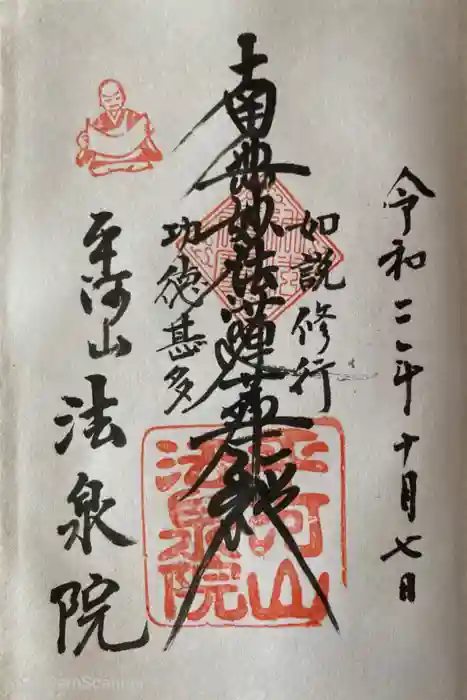 令和二年十月七日
如説修行
南無妙法蓮華経
功徳甚多
平河山 法泉院
平河山
法泉院